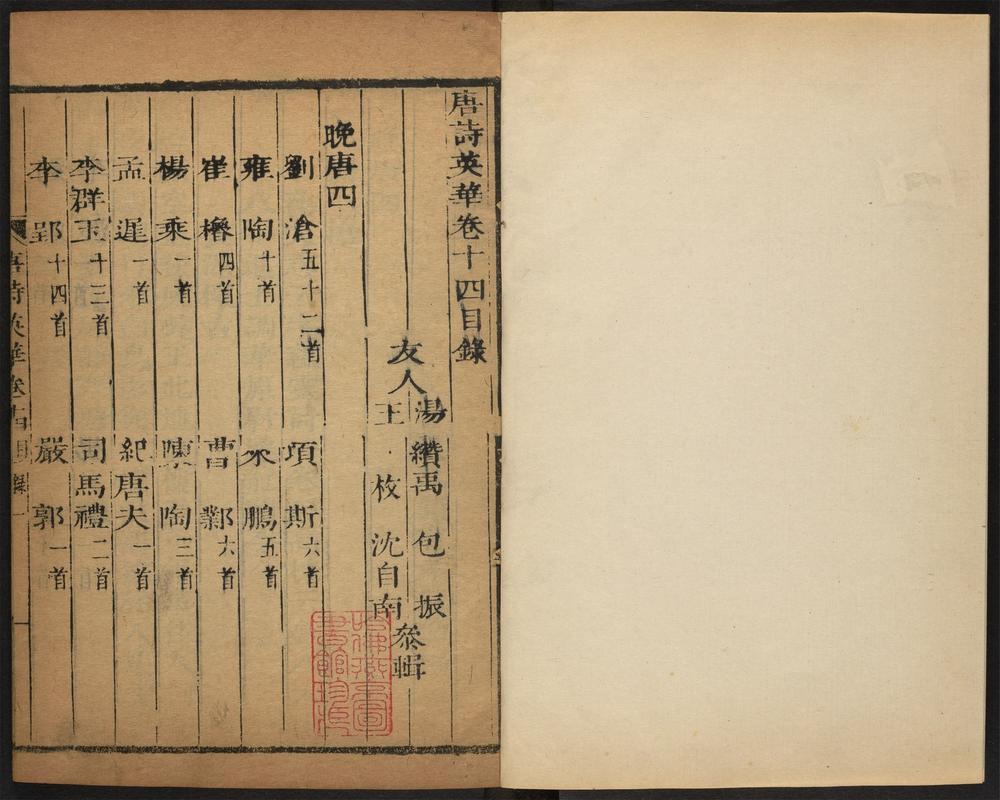 唐詩英華卷十四目錄
友人 湯纘禹 包振
王枚 沈自南 叅輯
晚唐四
劉滄 五十二首 項斯 六首
雍陶 十首 來鵬 五首
崔櫓 四首 曹鄴 六首
楊乘 一首 陳陶 三首
孟遲 一首 紀唐夫 一首
李群玉 十三首 司馬禮 二首
李郢 十四首 嚴郭 一首
唐詩英華卷十四目錄 一
哈佛燕京圖書館珍藏